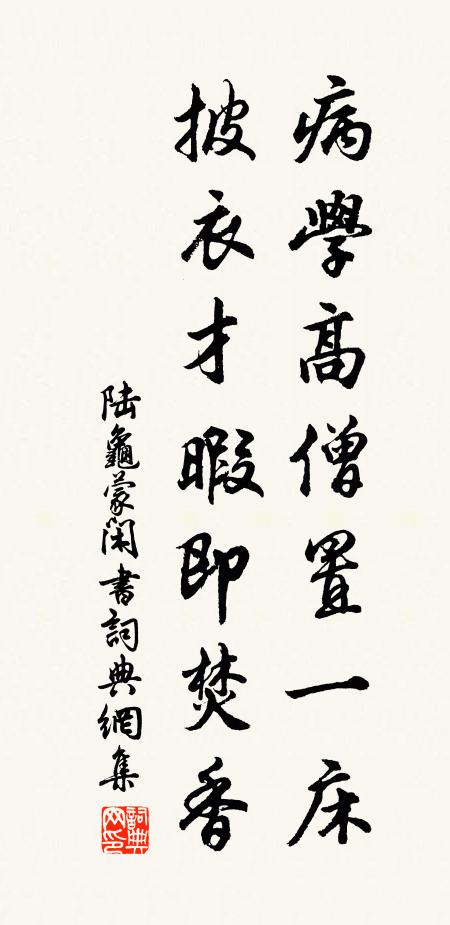 病學高僧置一床
披衣才暇即焚香
陸龜蒙閑書詞典網集
詞典网印